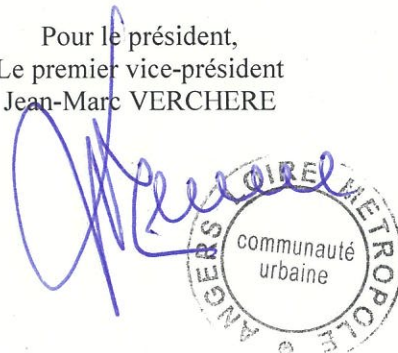 Pour le président,
Le premier vice-président
Jean-Marc VERCHERE
ANGERS LOIRE METROPOLE
communauté
urbaine